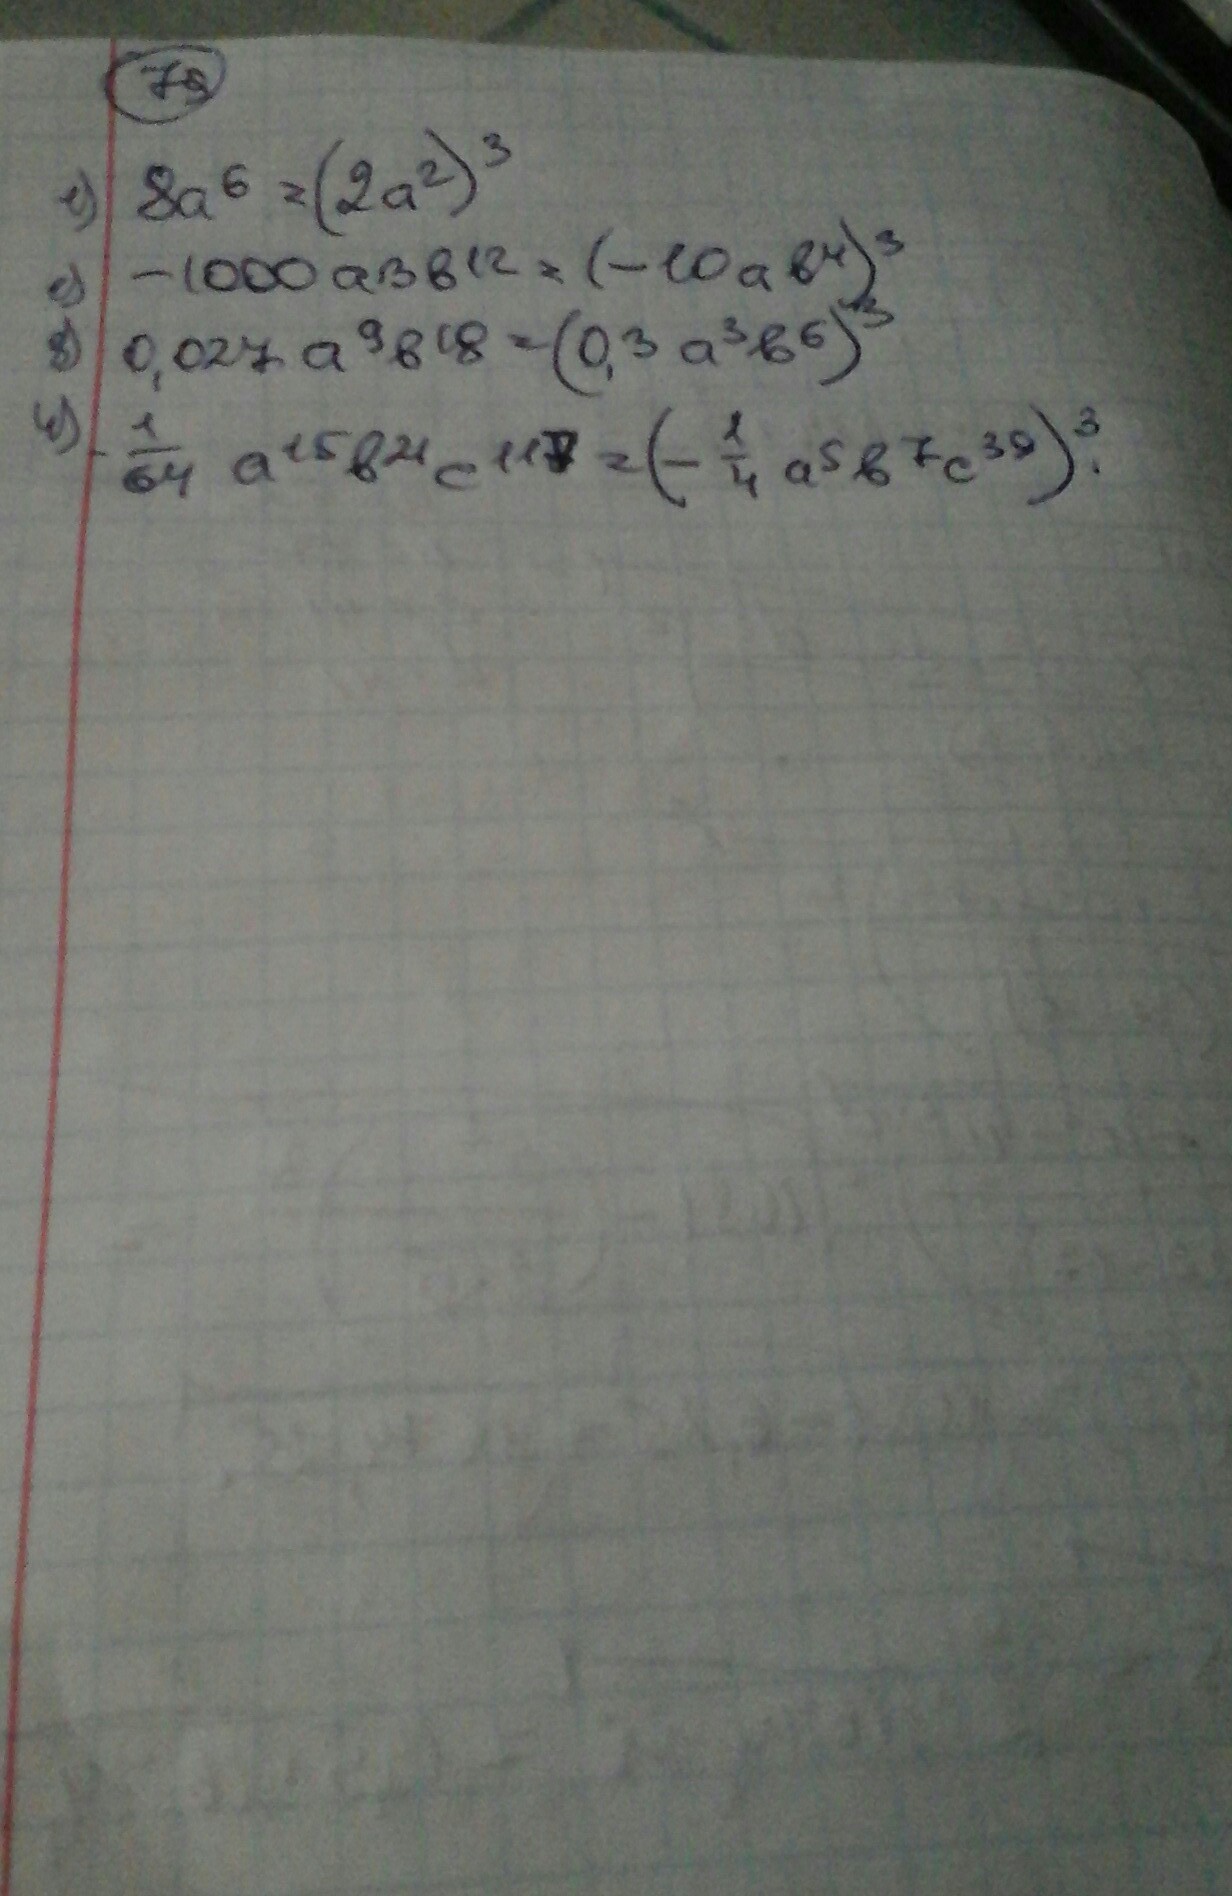 79
1) 8a⁶ = (2a²)³
2) -1000a³b¹² = (-10ab⁴)³
3) 0,027a⁹b¹⁸ = (0,3a³b⁶)³
4) -1/64 a¹⁵b²¹c¹¹⁷ = (-1/4 a⁵b⁷c³⁹)³.